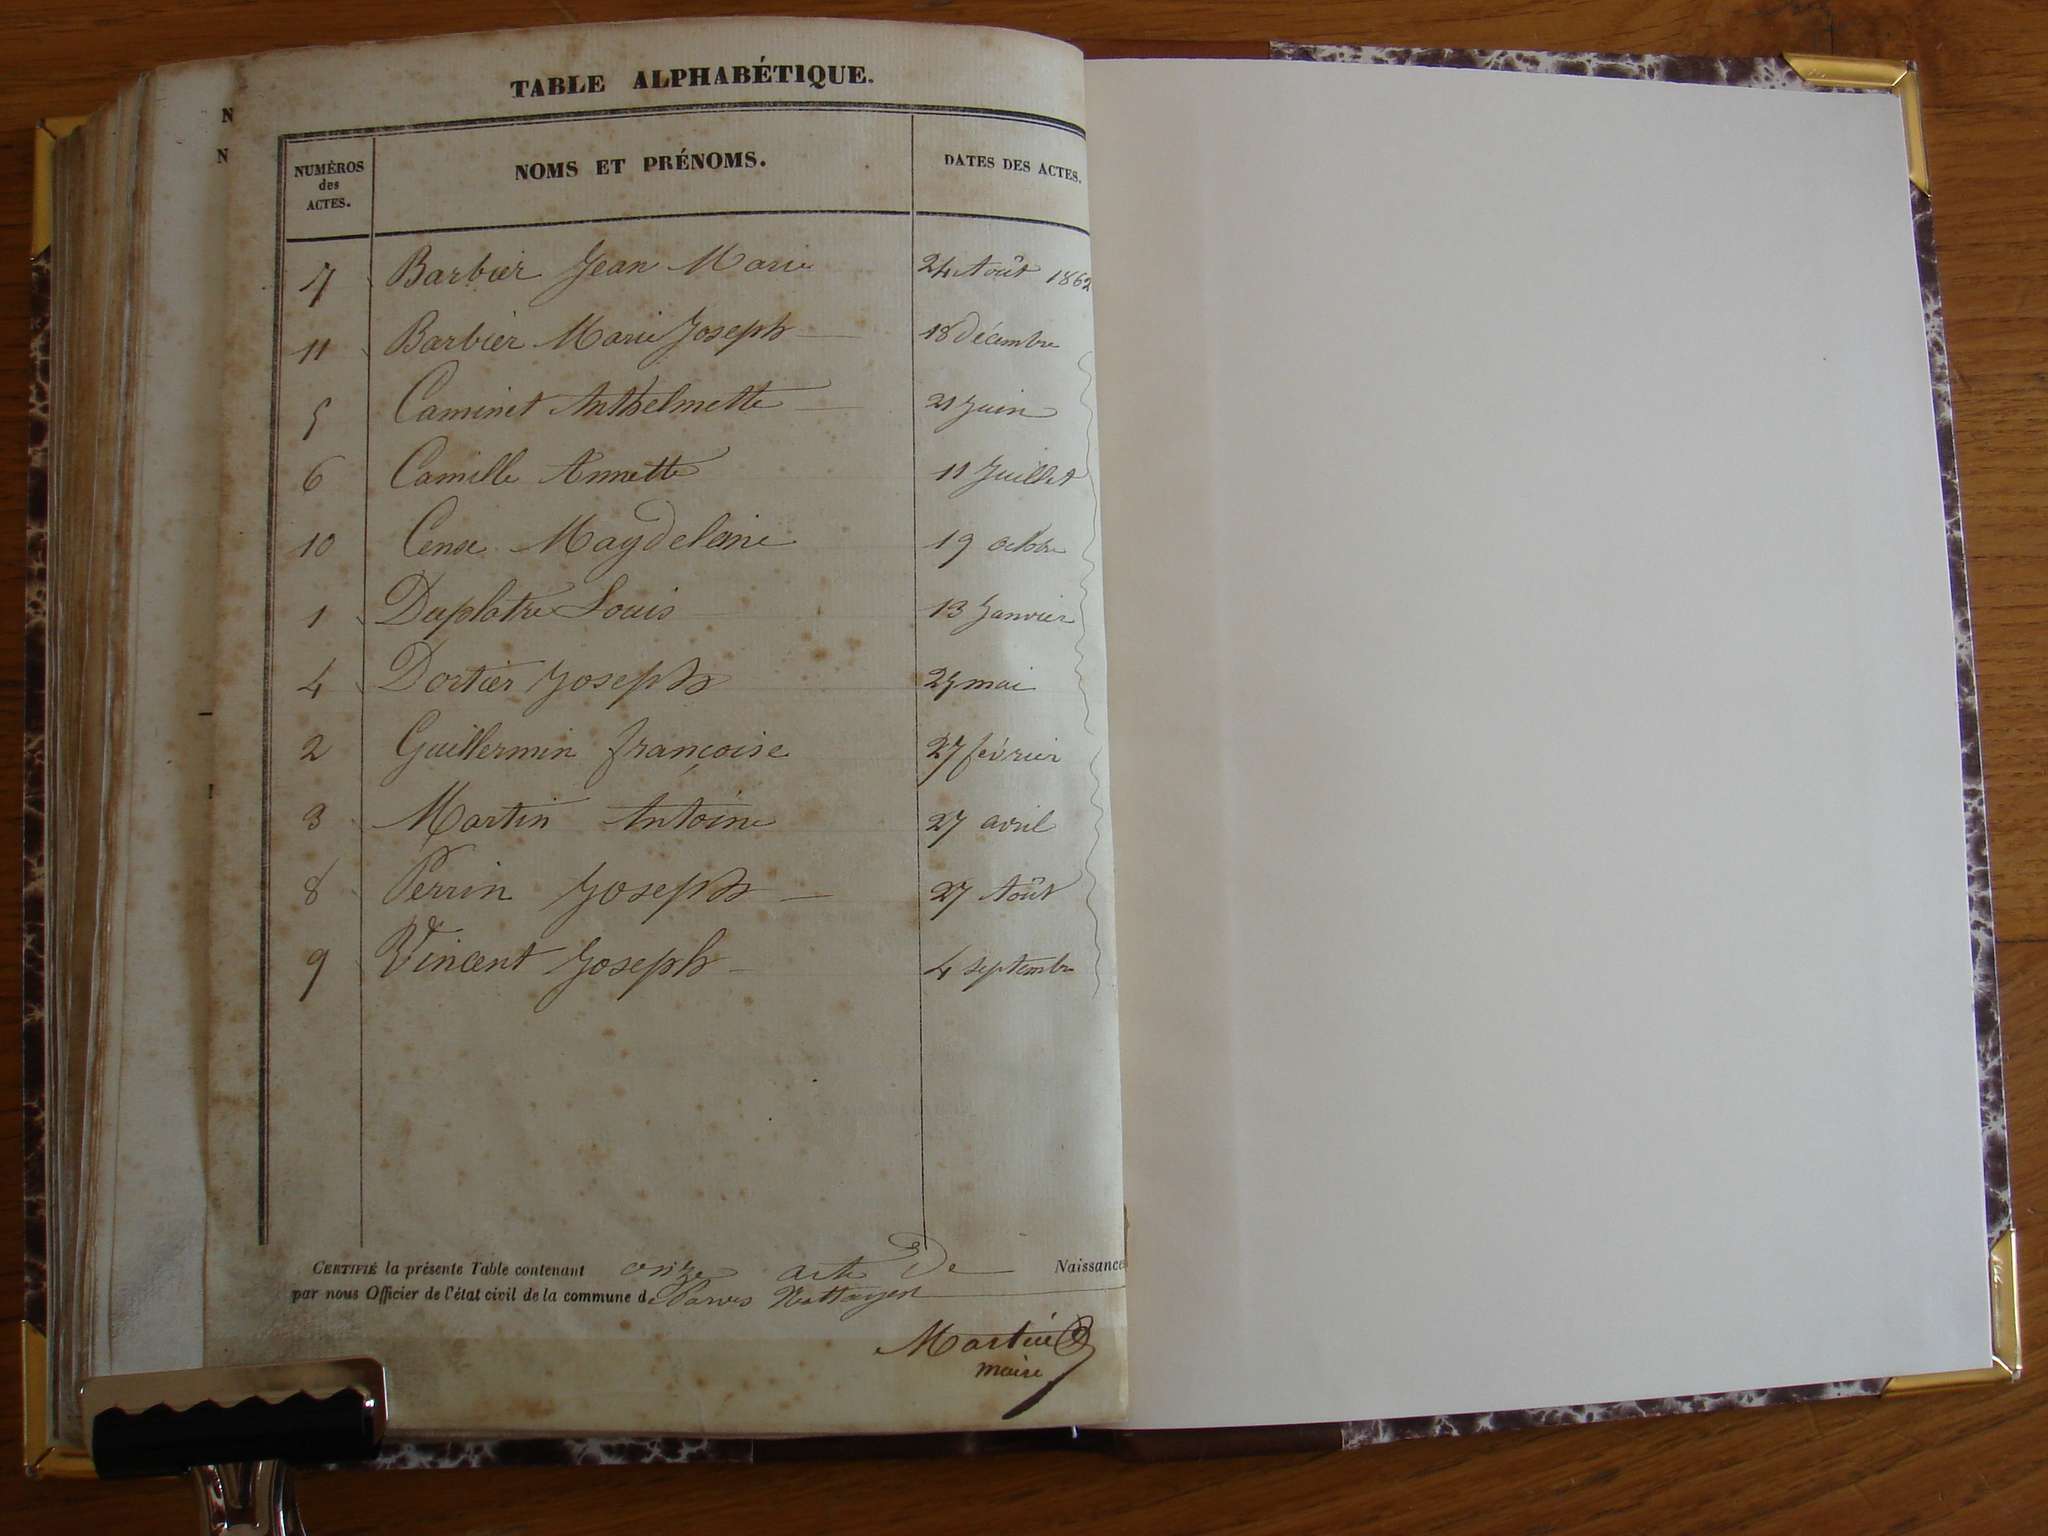 TABLE ALPHABÉTIQUE.
NUMÉROS des ACTES. NOMS ET PRÉNOMS. DATES DES ACTES.
7 Barbier Jean Marie 24 Août 1862
11 Barbier Marie Joseph 18 décembre
5 Caminet Anthelmette 21 Juin
6 Camille Annette 11 Juillet
10 Cense Magdelaine 19 octobre
1 Duplatre Louis 13 Janvier
4 Dortier Joseph 25 mai
2 Guillermin françoise 27 février
3 Martin Antoine 27 avril
8 Perrin Joseph 27 Août
9 Vincent Joseph 4 septembre
CERTIFIÉ la présente Table contenant onze acte De Naissance
par nous Officier de l'état civil de la commune de Parves
maire